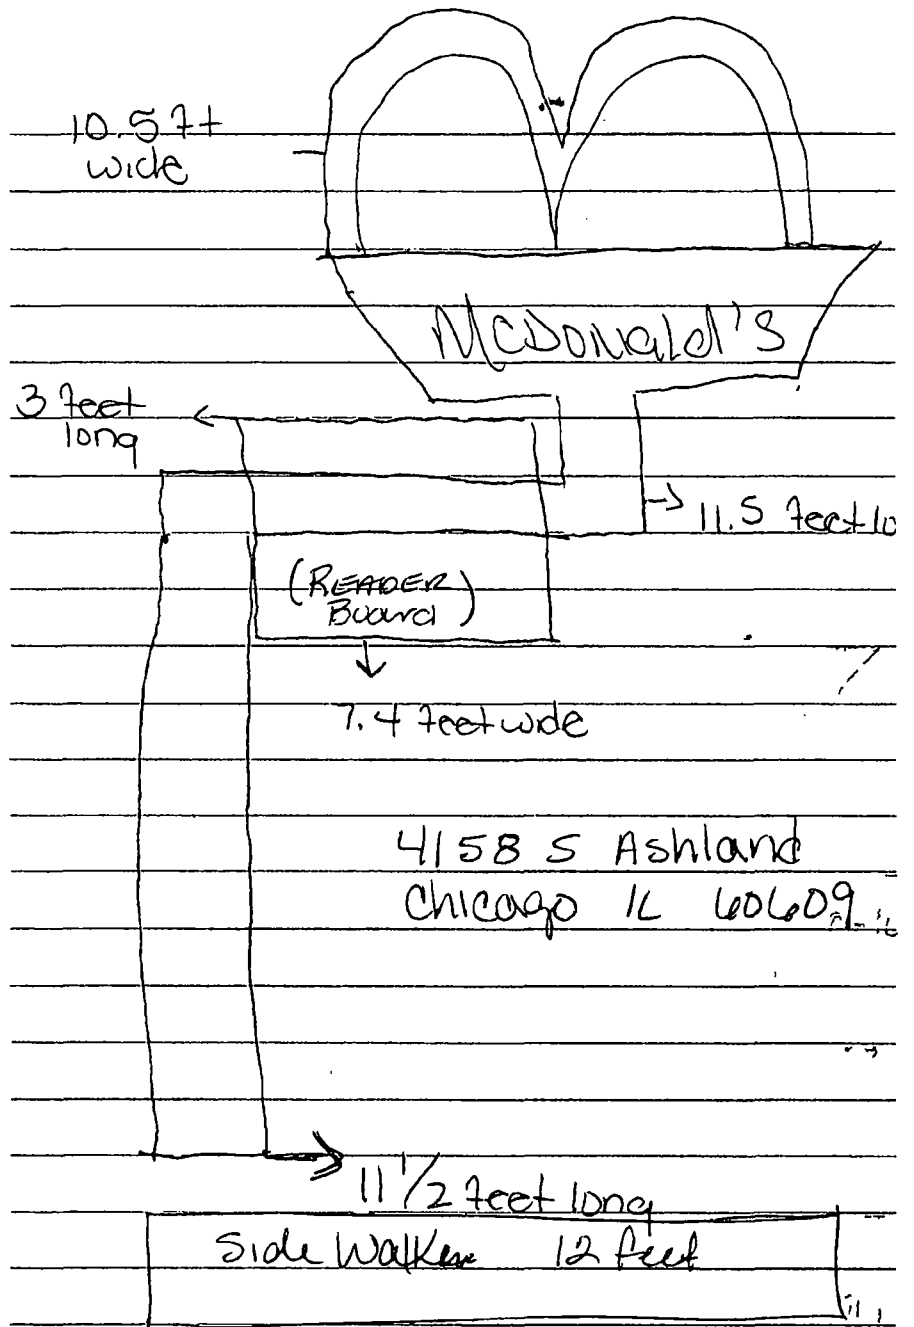 10.5 ft
wide
McDonald's
3 feet
long
11.5 feet lo
(READER
Board)
7.4 feet wide
4158 S Ashland
Chicago IL 60609
11 1/2 feet long
Side Walk 12 feet